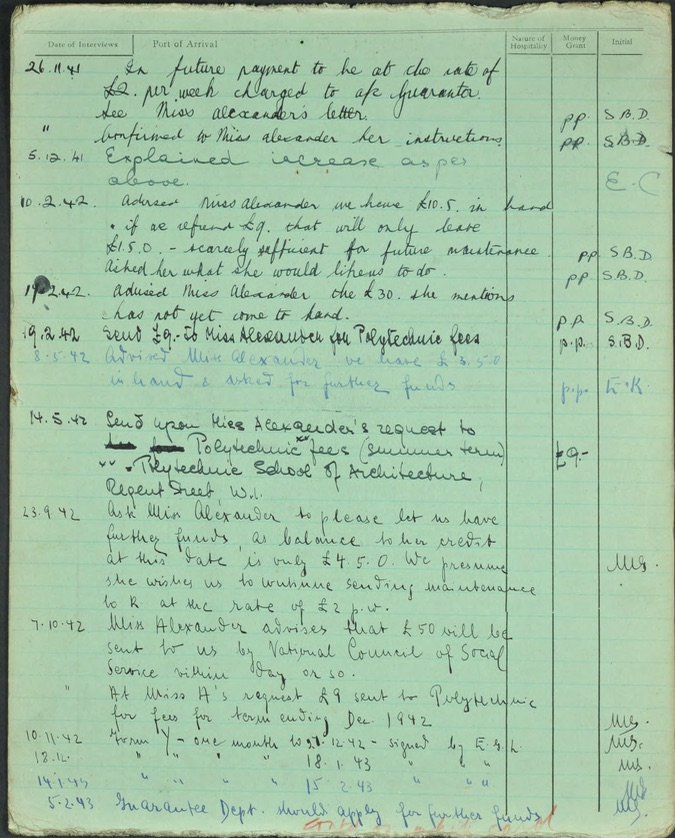 Date of Interviews Port of Arrival Nature of Hospitality Money Grant Initial
26.11.41 In future payment to be at the rate of
£2. per week charged to a/c Guarantor.
See Miss Alexander's letter. pp. S.B.D.
" Confirmed to Miss Alexander her instructions pp. S.B.D.
5.12.41 Explained increase as per
above. E.C
10.2.42. Advised Miss Alexander we have £10.5. in hand
. if we refund £9. that will only leave
£1.5.0. - scarcely sufficient for future maintenance. pp. S.B.D.
Asked her what she would like us to do. pp. S.B.D.
2.42. Advised Miss Alexander the £30. she mentions
has not yet come to hand. pp. S.B.D.
19.2.42 Send £9.- to Miss Alexander for Polytechnic fees p.p. S.B.D.
8.5.42 Advised Miss Alexander we have £3.5.0
in hand & asked for further funds p.p. E.K.
14.5.42 Send upon Miss Alexander's request to
Polytechnic fees (summer term) £9.-
Polytechnic School of Architecture,
Regent Street, W.1.
23.9.42 Ask Miss Alexander to please let us have
further funds, as balance to her credit
at this date is only £4.5.0. We presume MS.
she wishes us to continue sending maintenance
to R at the rate of £2 p.w.
7.10.42 Miss Alexander advises that £50 will be
sent to us by National Council of Social
Service within day or so.
" At Miss A's request £9 sent to Polytechnic
for fees for term ending Dec. 1942 MS.
10.11.42 Form Y - one month to 31.12.42 - signed by E.S.L. MS.
18.12. " " " " 18.1.43 " " " MS.
14.1.43 " " " " 15.2.43 " " " MS
5.2.43 Guarantee Dept. should apply for further funds MS.